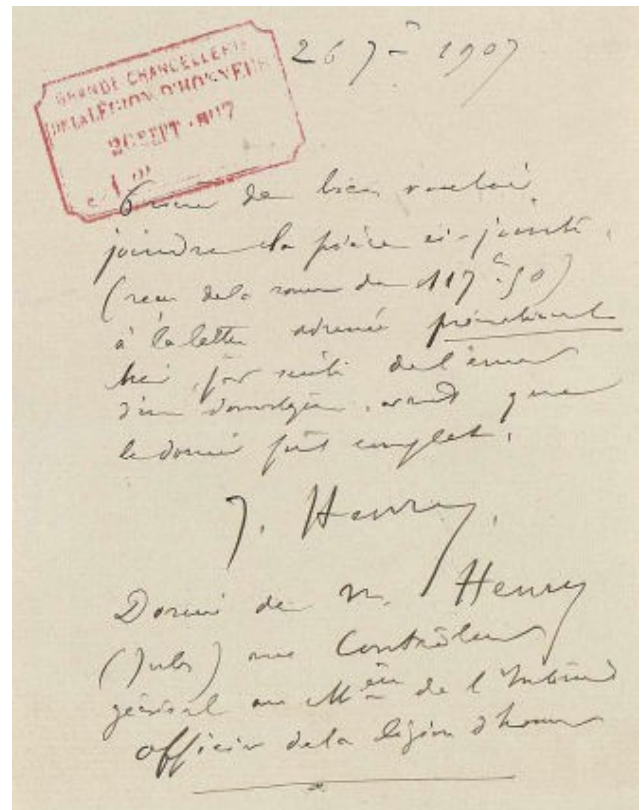 GRANDE CHANCELLERIE
DE LA LÉGION D'HONNEUR
26 SEPT 1907
26 7re 1907
Prière de bien vouloir
joindre la pièce ci-jointe,
(reçu de la somme de 117f.50)
à la lettre adressée prématurément
hier, par suite de l'erreur
d'un domestique, avant que
le dossier fût complet.
J. Henry.
Dossier de M. Henry
(Jules) Contrôleur
général au Mère de l'Intérieur
officier de la légion d'honneur